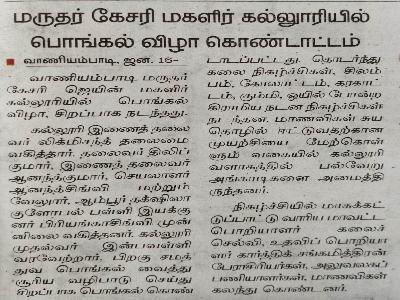 மருதர் கேசரி மகளிர் கல்லூரியில்
பொங்கல் விழா கொண்டாட்டம்
வாணியம்பாடி, ஜன. 16–
வாணியம்பாடி மருதர்
கேசரி ஜெயின் மகளிர்
கல்லூரியில் பொங்கல்
விழா, சிறப்பாக நடந்தது.
கல்லூரி இணைத் தலை
வர் லிக்மிசந்த் தலைமை
வகித்தார். தலைவர் திலிப்
குமார், இணைத் தலைவர்
ஆனந்த்குமார், செயலாளர்
ஆனந்த்சிங்வி மற்றும்
வேலூர், ஆம்பூர் நக்‌ஷிலா
குளோபல் பள்ளி இயக்கு
னர் பிரியங்காசிங்வி முன்
னிலை வகித்தனர். கல்லூரி
முதல்வர் இன்பவள்ளி
வரவேற்றார். பிறகு சமத்
துவ பொங்கல் வைத்து
சூரிய வழிபாடு செய்து
சிறப்பாக பொங்கல் கொண்
டாடப்பட்டது. தொடர்ந்து
கலை நிகழ்ச்சிகள், சிலம்
பம், கோலாட்டம், கரகாட்
டம், கும்மி, ஒயில் போன்ற
கிராமிய நடன நிகழ்ச்சிகள்
நடந்தன. மாணவிகள் சுய
தொழில் ஈட்டுவதற்கான
முயற்சியை மேற்கொள்
ளும் வகையில் கல்லூரி
வளாகத்தில் பல்வேறு
அங்காடிகளை அமைத்தி
ருந்தனர்.
நிகழ்ச்சியில் மாசுக்கட்
டுப்பாட்டு வாரிய மாவட்ட
பொறியாளர் கலைச்
செல்வி, உதவிப் பொறியா
ளர் கார்த்திக் சங்கமித்திரன்
பேராசிரியர்கள், அலுவலகப்
பணியாளர்கள், மாணவிகள்
கலந்து கொண்டனர்.